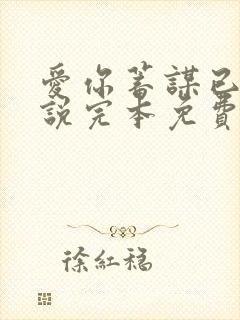 愛你蓄謀已
說完本免費
徐紅稳